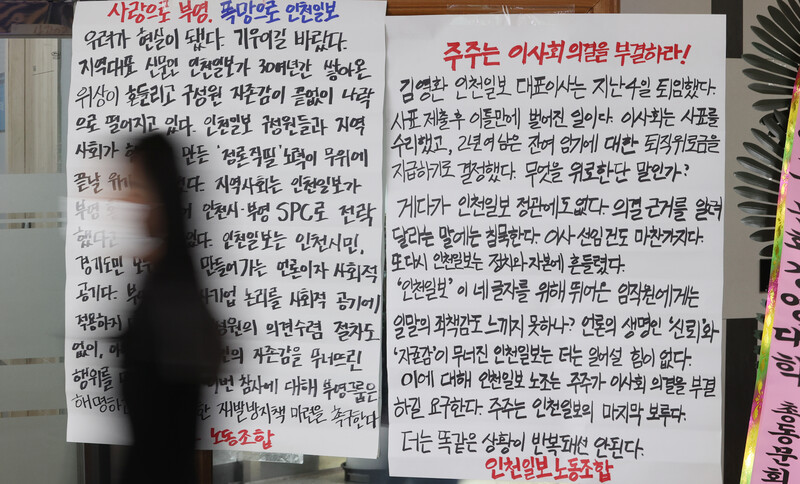 사랑으로 부영, 폭망으로 인천일보
우려가 현실이 됐다. 기우이길 바랐다.
지역대표 신문인 인천일보가 30여년간 쌓아온
위상이 흔들리고 구성원 자존감이 끝없이 나락
으로 떨어지고 있다. 인천일보 구성원들과 지역
사회가 만든 '정론직필' 노력이 무위에
끝날 있다. 지역사회는 인천일보가
부영 인천시·부영 SPC로 전락
했다고 있다. 인천일보는 인천시민,
경기도민 만들어가는 언론이자 사회적
공기다. 기업 논리를 사회적 공기에
적용하지 구성원의 의견수렴 절차도
없이, 의 자존감을 무너뜨린
행위를 이번 참사에 대해 부영그룹은
해명하 한 재발방지책 마련을 촉구한다
노동조합
주주는 이사회 의결을 부결하라!
김영환 인천일보 대표이사는 지난 4일 퇴임했다.
사표 제출후 이틀만에 벌어진 일이다. 이사회는 사표를
수리했고, 2년여 남은 잔여 임기에 대한 퇴직위로금을
지급하기로 결정했다. 무엇을 위로한단 말인가?
게다가 인천일보 정관에도 없다. 의결 근거를 알려
달라는 말에는 침묵한다. 이사 선임 건도 마찬가지다.
또 다시 인천일보는 정치와 자본에 흔들렸다.
"인천일보" 이 네 글자를 위해 뛰어온 임직원에게는
일말의 죄책감도 느끼지 못하나? 언론의 생명인 '신뢰'와
'자존감'이 무너진 인천일보는 더는 일어설 힘이 없다.
이에 대해 인천일보 노조는 주주가 이사회 의결을 부결
하길 요구한다. 주주는 인천일보의 마지막 보루다.
더는 똑같은 상황이 반복돼선 안된다.
인천일보 노동조합
경영대학 총동문회